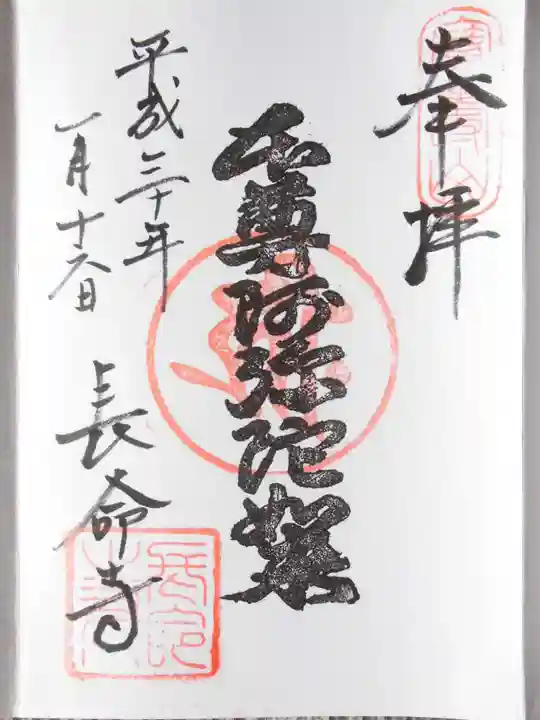 奉拝
千尊阿弥陀業
平成三十年
一月十六日
長命寺